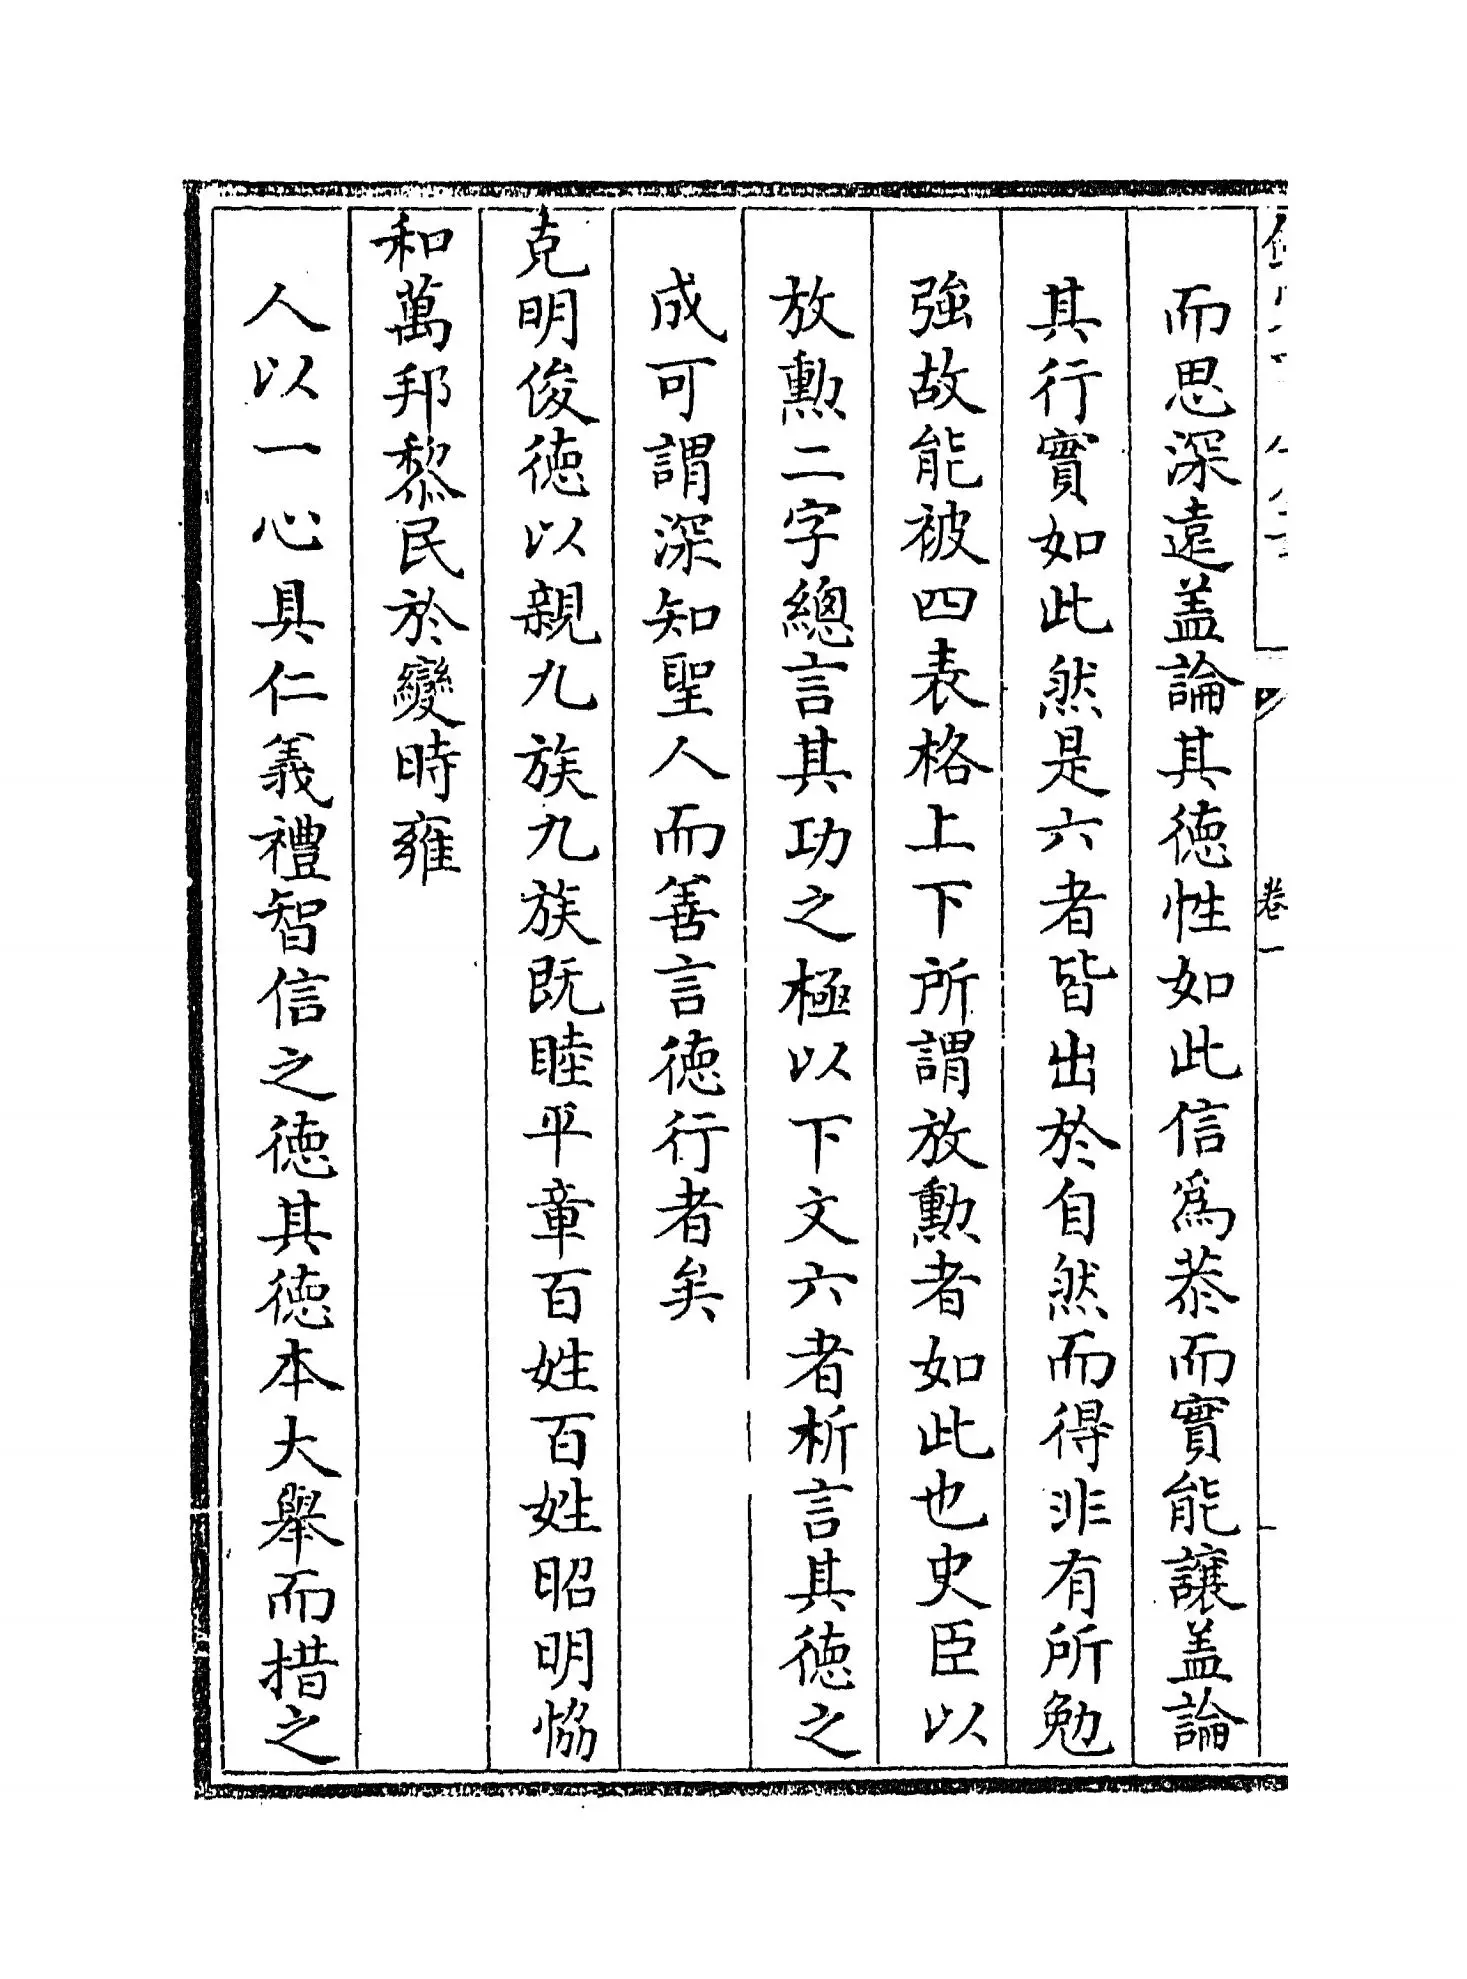 卷一
而思深遠盖論其徳性如此信爲恭而實能讓盖論
其行實如此然是六者皆出於自然而得非有所勉
強故能被四表格上下所謂放勲者如此也史臣以
放勲二字總言其功之極以下文六者析言其徳之
成可謂深知聖人而善言徳行者矣
克明俊徳以親九族九族既睦平章百姓百姓昭明恊
和萬邦黎民於變時雍
人以一心具仁義禮智信之徳其徳本大舉而措之